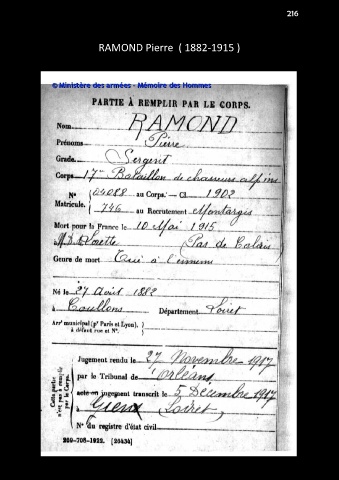 216
RAMOND Pierre ( 1882-1915 )
© Ministère des armées - Mémoire des Hommes
PARTIE À REMPLIR PAR LE CORPS.
Nom RAMOND
Prénoms Pierre
Grade Sergent
Corps 17me Bataillon de chasseurs alpins
N° 04088 au Corps. — Cl. 1902
Matricule. 746 au Recrutement Montargis
Mort pour la France le 10 Mai 1915
à N.D. de Lorette (Pas de Calais)
Genre de mort Tué à l'ennemi
Né le 27 Août 1882
à Coullons Département Loiret
Arrt municipal (pr Paris et Lyon),
à défaut rue et N°.
Cette partie n'est pas à remplir par le Corps.
Jugement rendu le 27 Novembre 1917
par le Tribunal de Orléans
acte ou jugement transcrit le 5 Décembre 1917
à Gien (Loiret)
N° du registre d'état civil
209-708-1922. [26434]